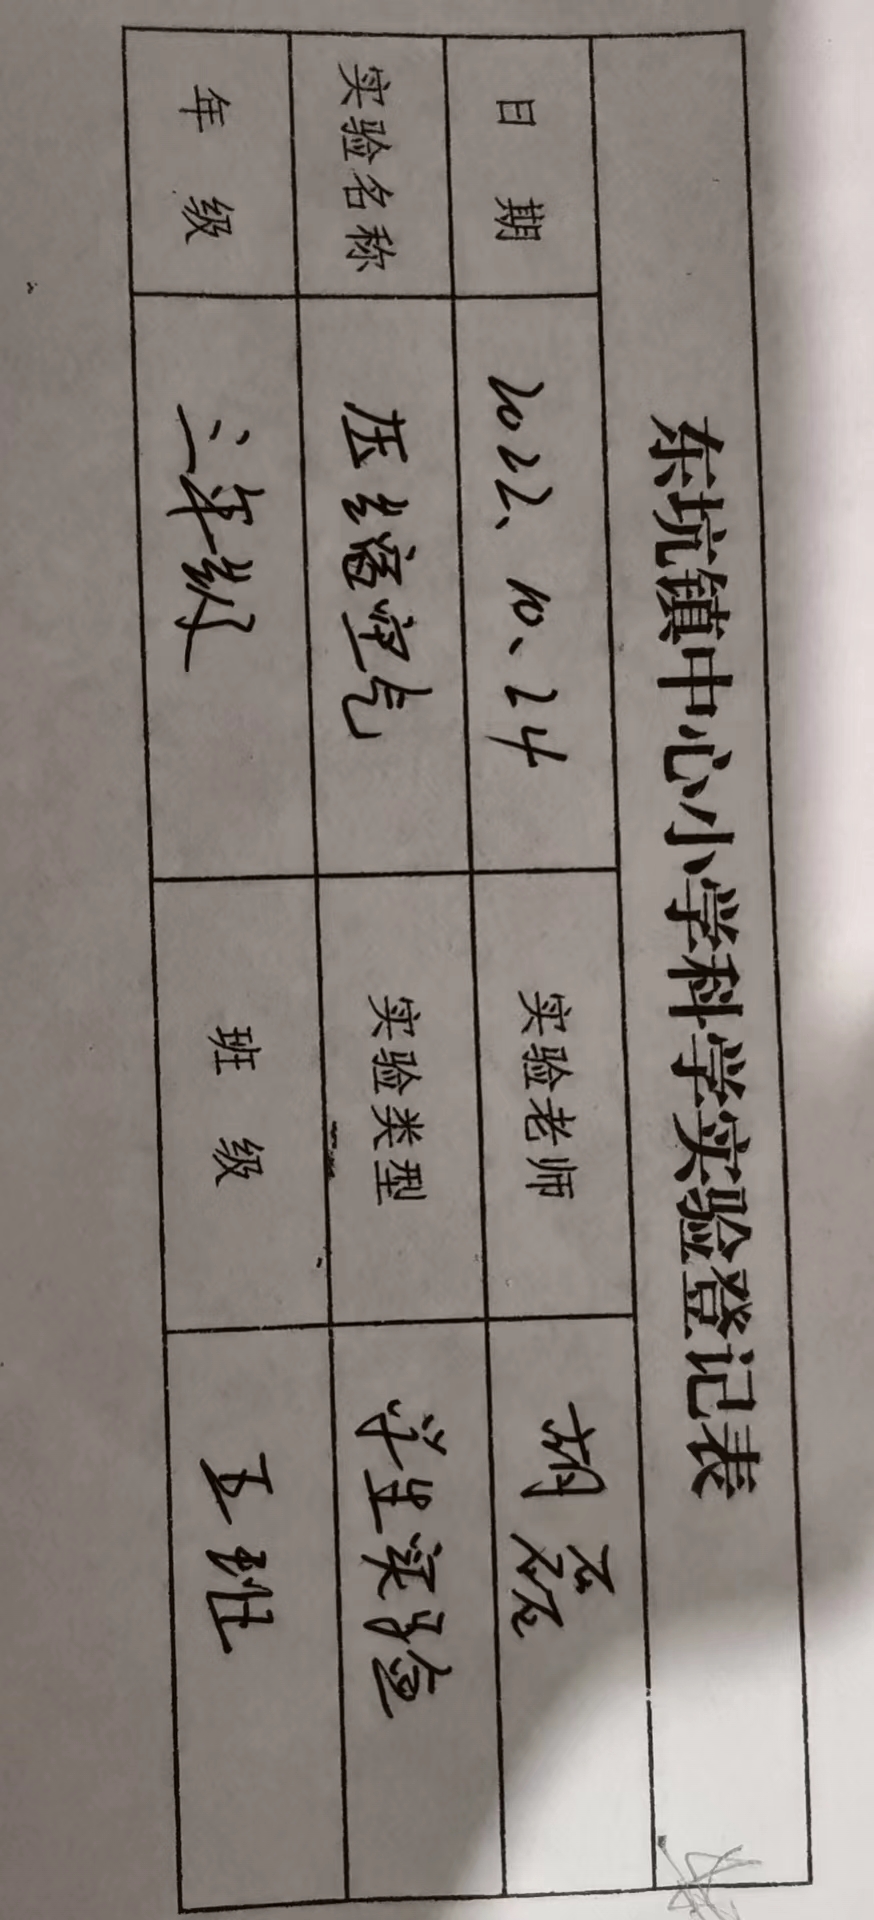 东坑镇中心小学科学实验登记表
日 期 2022、10、24 实验老师 胡磊
实验名称 压缩空气 实验类型 学生实验
年 级 三年级 班 级 五班